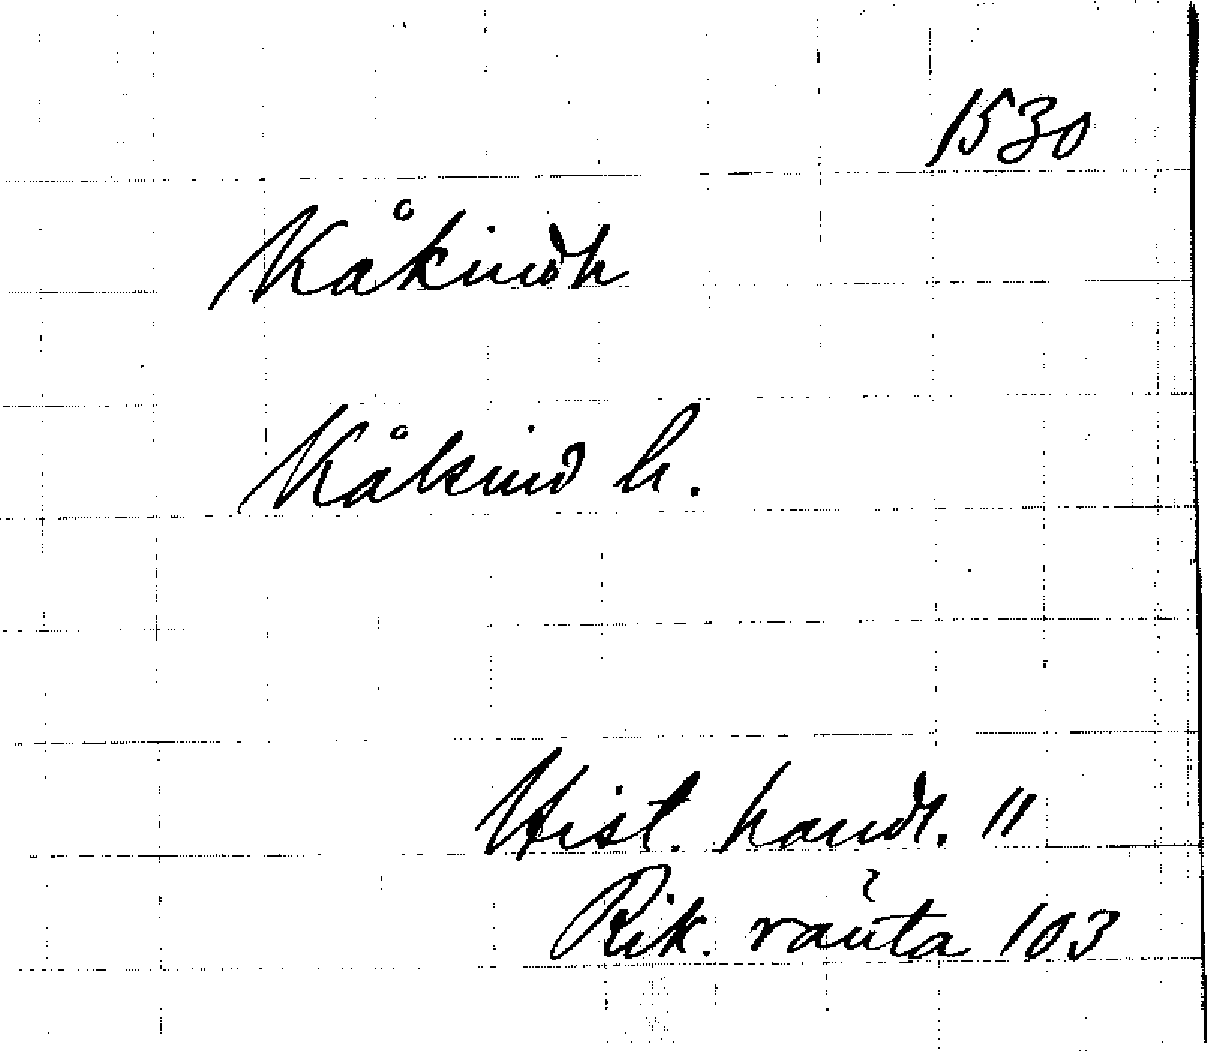 1530
Kåkindh
Kåkind h.
Hist. handl. 11
Rik. ränta 103